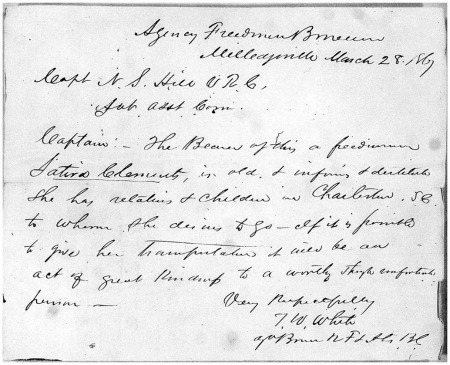 Agency Freedmen Bureau
Milledgeville March 28. 1867
Capt N. S. Hill V R C,
Sub Asst Com.
Captain:- The Bearer of this a freedwoman
Clements, is old & infirm & destitute
She has relatives & children in Charleston. SC
to whom she desires to go - If it is possible
to give her transportation it will be an
act of great kindness to a worthy though unfortunate
person -
Very Respectfully
T. W. White